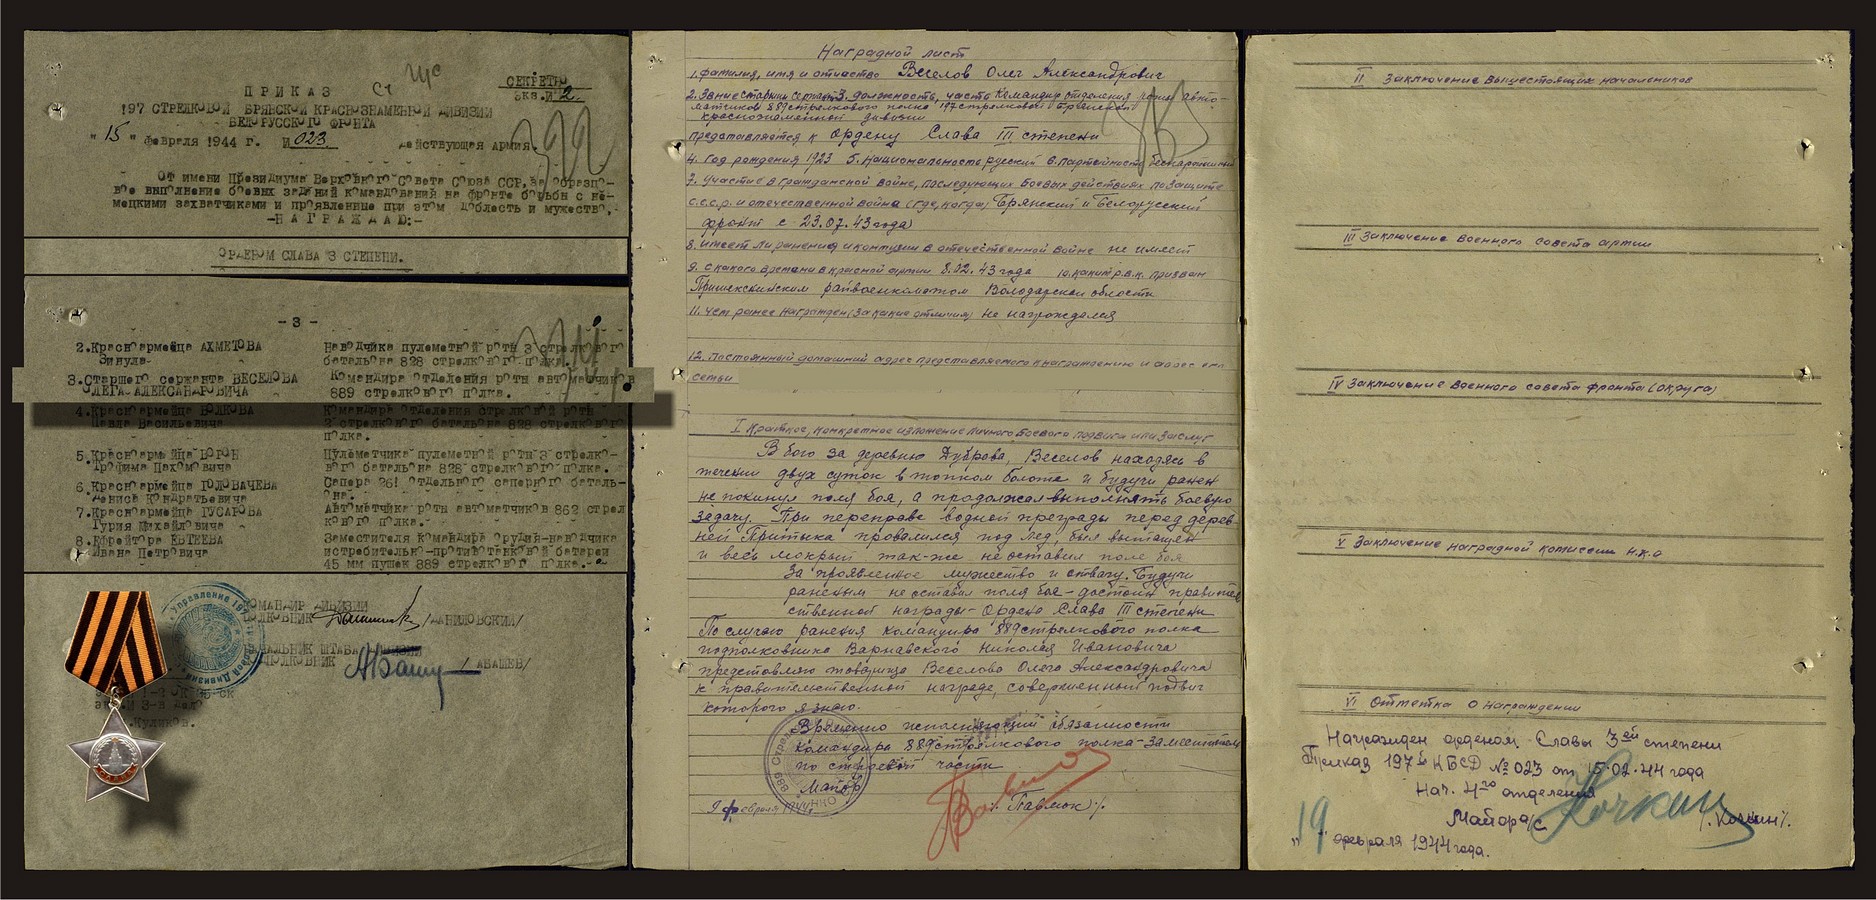 Сг щс
СЕКРЕТНО
Экз.№ 2.
ПРИКАЗ
197 СТРЕЛКОВОЙ БРЯНСКОЙ КРАСНОЗНАМЕННОЙ ДИВИЗИИ
БЕЛОРУССКОГО ФРОНТА
" 15 " февраля 1944 г. № 023. Действующая Армия.
От имени Президиума Верховного Совета Союза ССР, за образцо-
вое выполнение боевых заданий командования на фронте борьбы с не-
мецкими захватчиками и проявленные при этом доблесть и мужество,-
-НАГРАЖДАЮ:-
ОРДЕНОМ СЛАВА 3 СТЕПЕНИ.
- 3 -
2.Красноармейца АХМЕТОВА Наводчика пулеметной роты 3 стрелкового
Зинула- батальона 828 стрелкового полка.
3.Старшего сержанта ВЕСЕЛОВА Командира отделения роты автоматчиков
ОЛЕГА АЛЕКСАНДРОВИЧА 889 стрелкового полка.
4.Красноармейца ВОЛКОВА Командира отделения стрелковой роты
Павла Васильевича 2 стрелкового батальона 828 стрелкового
полка.
5.Красноармейца ВОРОН Пулеметчика пулеметной роты 3 стрелко-
Трофима Пахомовича вого батальона 828 стрелкового полка.
6.Красноармейца ГОЛОВАЧЕВА Сапера 261 отдельного саперного баталь-
Дениса Кондратьевича она.
7.Красноармейца ГУСАРОВА Автоматчика роты автоматчиков 862 стрел
Гурия Михайловича кового полка.
8.Ефрейтора ЕВТЕЕВА Заместителя командира орудия-наводчика
Ивана Петровича истребительно-противотанковой батареи
45 мм пушек 889 стрелкового полка.-
КОМАНДИР ДИВИЗИИ
ПОЛКОВНИК /ДАНИЛОВСКИЙ/
НАЧАЛЬНИК ШТАБА ДИВИЗИИ
ПОДПОЛКОВНИК /АБАШЕВ/
Куликов.
Наградной лист
1. Фамилия, имя и отчество Веселов Олег Александрович
2. Звание старший сержант 3. должность, часть Командир отделения роты авто-
матчиков 889 стрелкового полка 197 стрелковой Брянской
краснознаменной дивизии
представляется к Ордену Слава III степени
4. Год рождения 1923 5. Национальность русский 6. партейность беспартийный
7. Участие в гражданской войне, последующих боевых действиях по защите
С.С.С.Р. и отечественной войне (где, когда) Брянский и Белорусский
фронт с 23.07.43 года
8. Имеет ли ранения и контузии в отечественной войне не имеет
9. С какого времени в красной армии 8.02.43 года 10. каким р.в.к. призван
райвоенкоматом области
11. Чем ранее награжден (за какие отличия) не награждался
12. Постоянный домашний адрес представляемого к награждению и адрес его
семьи
I Краткое, конкретное изложение личного боевого подвига или заслуг
В бою за деревню Дуброва, Веселов находясь в
течении двух суток в топком болоте и будучи ранен
не покинул поля боя, а продолжал выполнять боевую
задачу. При переправе водной преграды перед дерев-
ней Притыка провалился под лед, был вытащен
и весь мокрый так-же не оставил поле боя
За проявленное мужество и отвагу. Будучи
раненым не оставил поля боя - достоин правитель
ственной награды - Ордена Слава III степени
По случаю ранения командира 889 стрелкового полка
подполковника Варнавского Николая Ивановича
представляю товарища Веселова Олега Александровича
к правительственной награде, совершенный подвиг
которого я знаю.
Временно исполняющий обязанности
Командира 889 стрелкового полка - Заместитель
по строевой части
Майор
9 февраля 1944 /Павлюк/.
II Заключение вышестоящих начальников
III Заключение военного совета армии
IV Заключение военного совета фронта (округа)
V Заключение наградной комиссии Н.К.О
VI Отметка о награждении
Награжден орденом Славы 3ей степени
Приказ 197 КБСД № 023 от 15.02.44 года
Нач. 4го отделения
Майор а/с Кочкин /Кочкин/.
" 19 " февраля 1944 года.